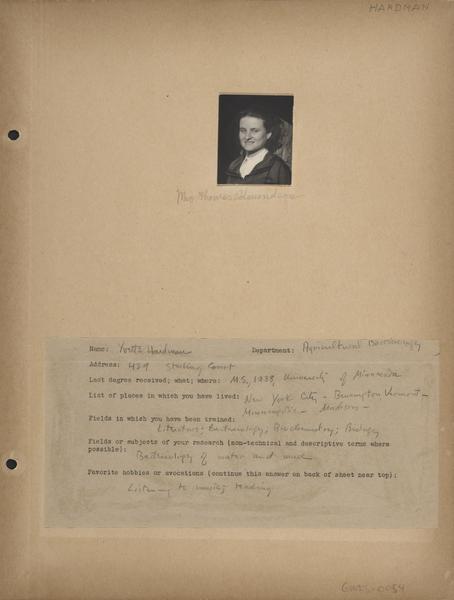 HARDMAN
Mrs Thomas Edmondson
Name: Yvette Hardman Department: Agricultural Bacteriology
Address: 429 Sterling Court
Last degree received; what; where: M.S., 1938, University of Minnesota
List of places in which you have lived: New York City - Bennington Vermont -
Minneapolis - Madison -
Fields in which you have been trained:
Literature; Bacteriology; Biochemistry; Biology
Fields or subjects of your research (non-technical and descriptive terms where
possible): Bacteriology of water and mud
Favorite hobbies or avocations (continue this answer on back of sheet near top):
Listening to music; reading